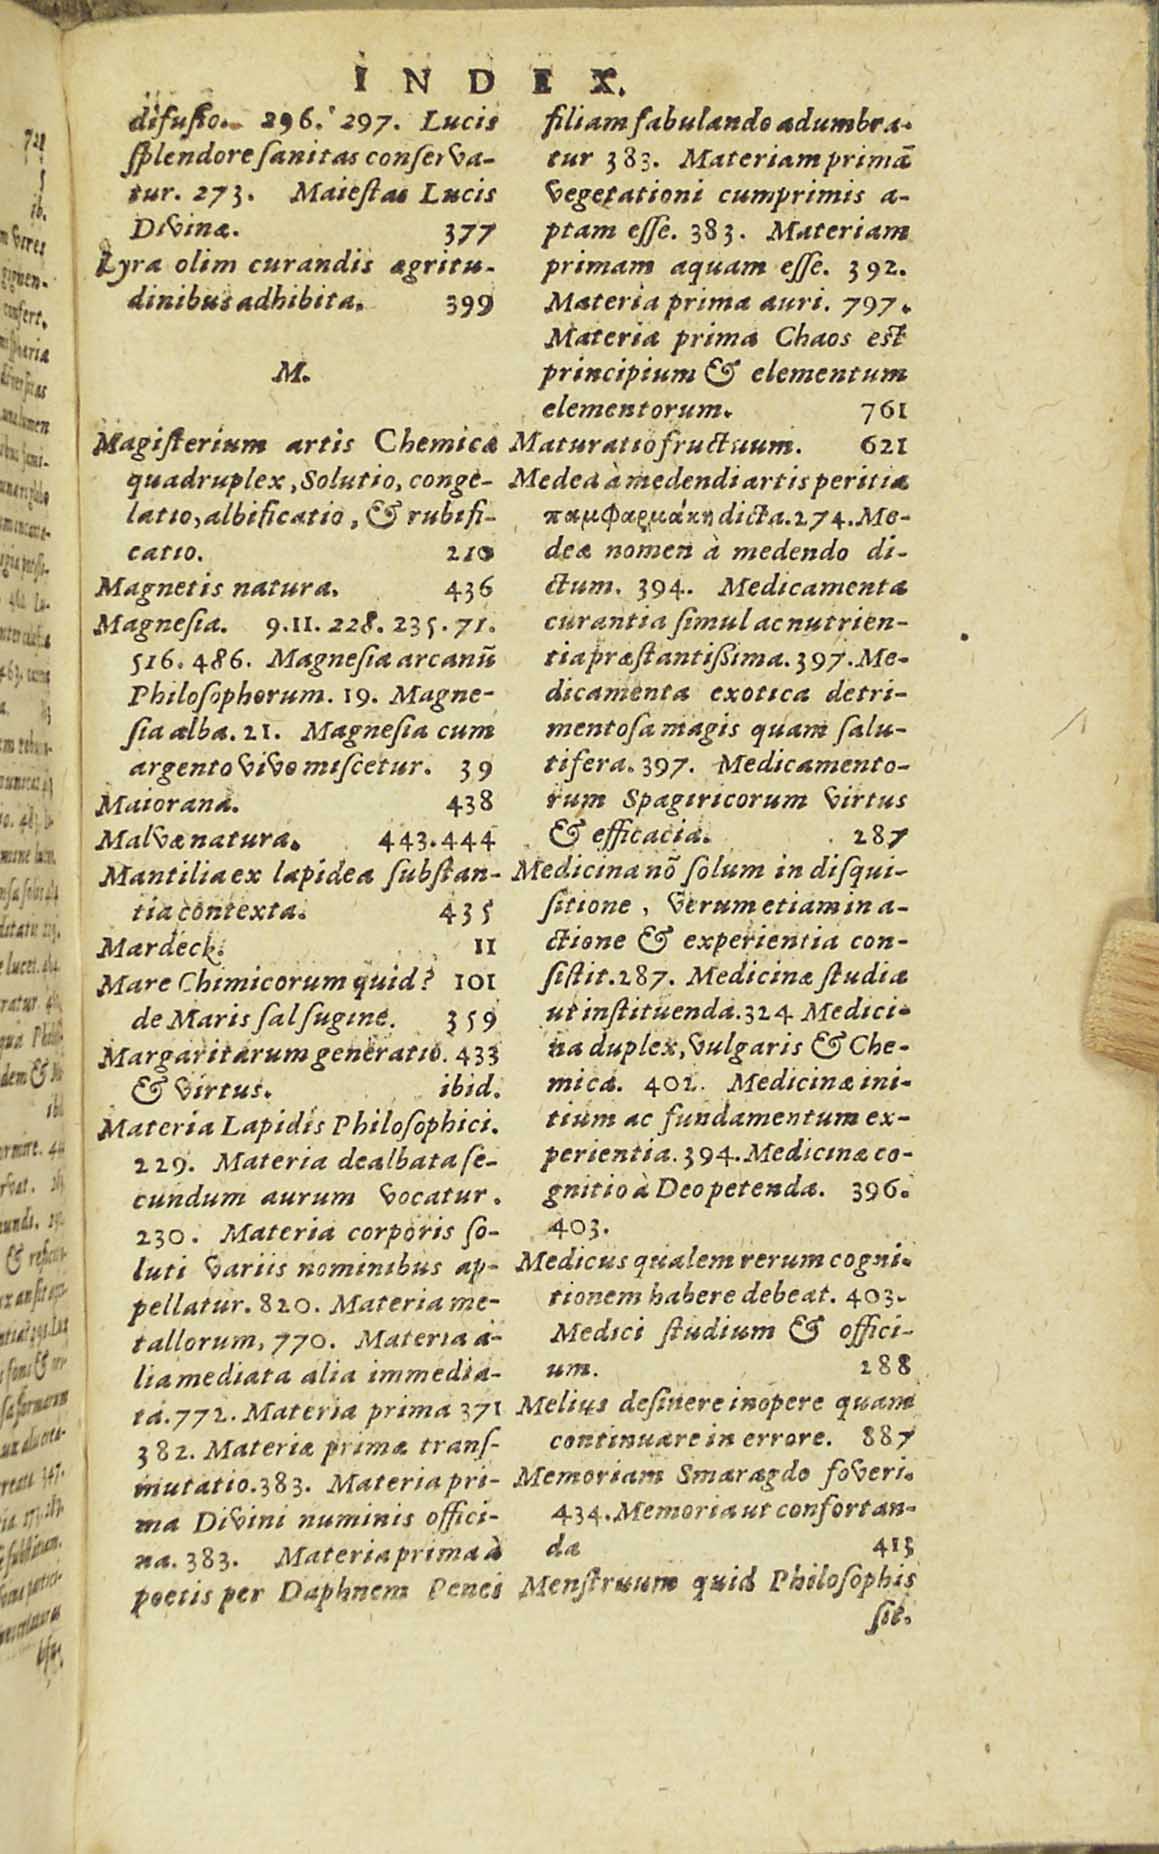 INDEX.
difusio. 296. 297. Lucis
splendore sanitas conserva-
tur. 273. Maiestas Lucis
Divinæ. 377
Lyra olim curandis ægritu-
dinibus adhibita. 399
M.
Magisterium artis Chemicæ
quadruplex, Solutio, conge-
latio, albificatio, & rubifi-
catio. 210
Magnetis natura. 436
Magnesia. 9.11. 228. 235. 71.
516. 486. Magnesia arcanũ
Philosophorum. 19. Magne-
sia alba. 21. Magnesia cum
argento vivo miscetur. 39
Maiorana. 438
Malvæ natura. 443. 444
Mantilia ex lapidea substan-
tia contexta. 435
Mardeck. 11
Mare Chimicorum quid? 101
de Maris salsugine. 359
Margaritarum generatio. 433
& virtus. ibid.
Materia Lapidis Philosophici.
229. Materia dealbata se-
cundum aurum vocatur.
230. Materia corporis so-
luti variis nominibus ap-
pellatur. 820. Materia me-
tallorum, 770. Materia a-
lia mediata alia immedia-
ta. 772. Materia prima 371
382. Materiæ primæ trans-
mutatio. 383. Materia pri-
ma Divini numinis offici-
na. 383. Materia prima à
poetis per Daphnem Penei
filiam fabulando adumbra-
tur 383. Materiam primã
vegetationi cumprimis a-
ptam esse. 383. Materiam
primam aquam esse. 392.
Materia prima auri. 797.
Materia prima Chaos est
principium & elementum
elementorum. 761
Maturatio fructuum. 621
Medea à medendi artis peritia
παμφαρμάκη dicta. 274. Me-
deæ nomen à medendo di-
ctum. 394. Medicamenta
curantia simul ac nutrien-
tia præstantissima. 397. Me-
dicamenta exotica detri-
mentosa magis quam salu-
tifera. 397. Medicamento-
rum Spagiricorum virtus
& efficacia. 287
Medicina nõ solum in disqui-
sitione, verum etiam in a-
ctione & experientia con-
sistit. 287. Medicinæ studia
ut instituenda. 324 Medici-
na duplex, vulgaris & Che-
mica. 402. Medicinæ ini-
tium ac fundamentum ex-
perientia. 394. Medicinæ co-
gnitio à Deo petenda. 396.
403.
Medicus qualem rerum cogni-
tionem habere debeat. 403.
Medici studium & offici-
um. 288
Melius desinere in opere quam
continuare in errore. 887
Memoriam Smaragdo foveri.
434. Memoria ut confortan-
da 413
Menstruum quid Philosophis
sit.